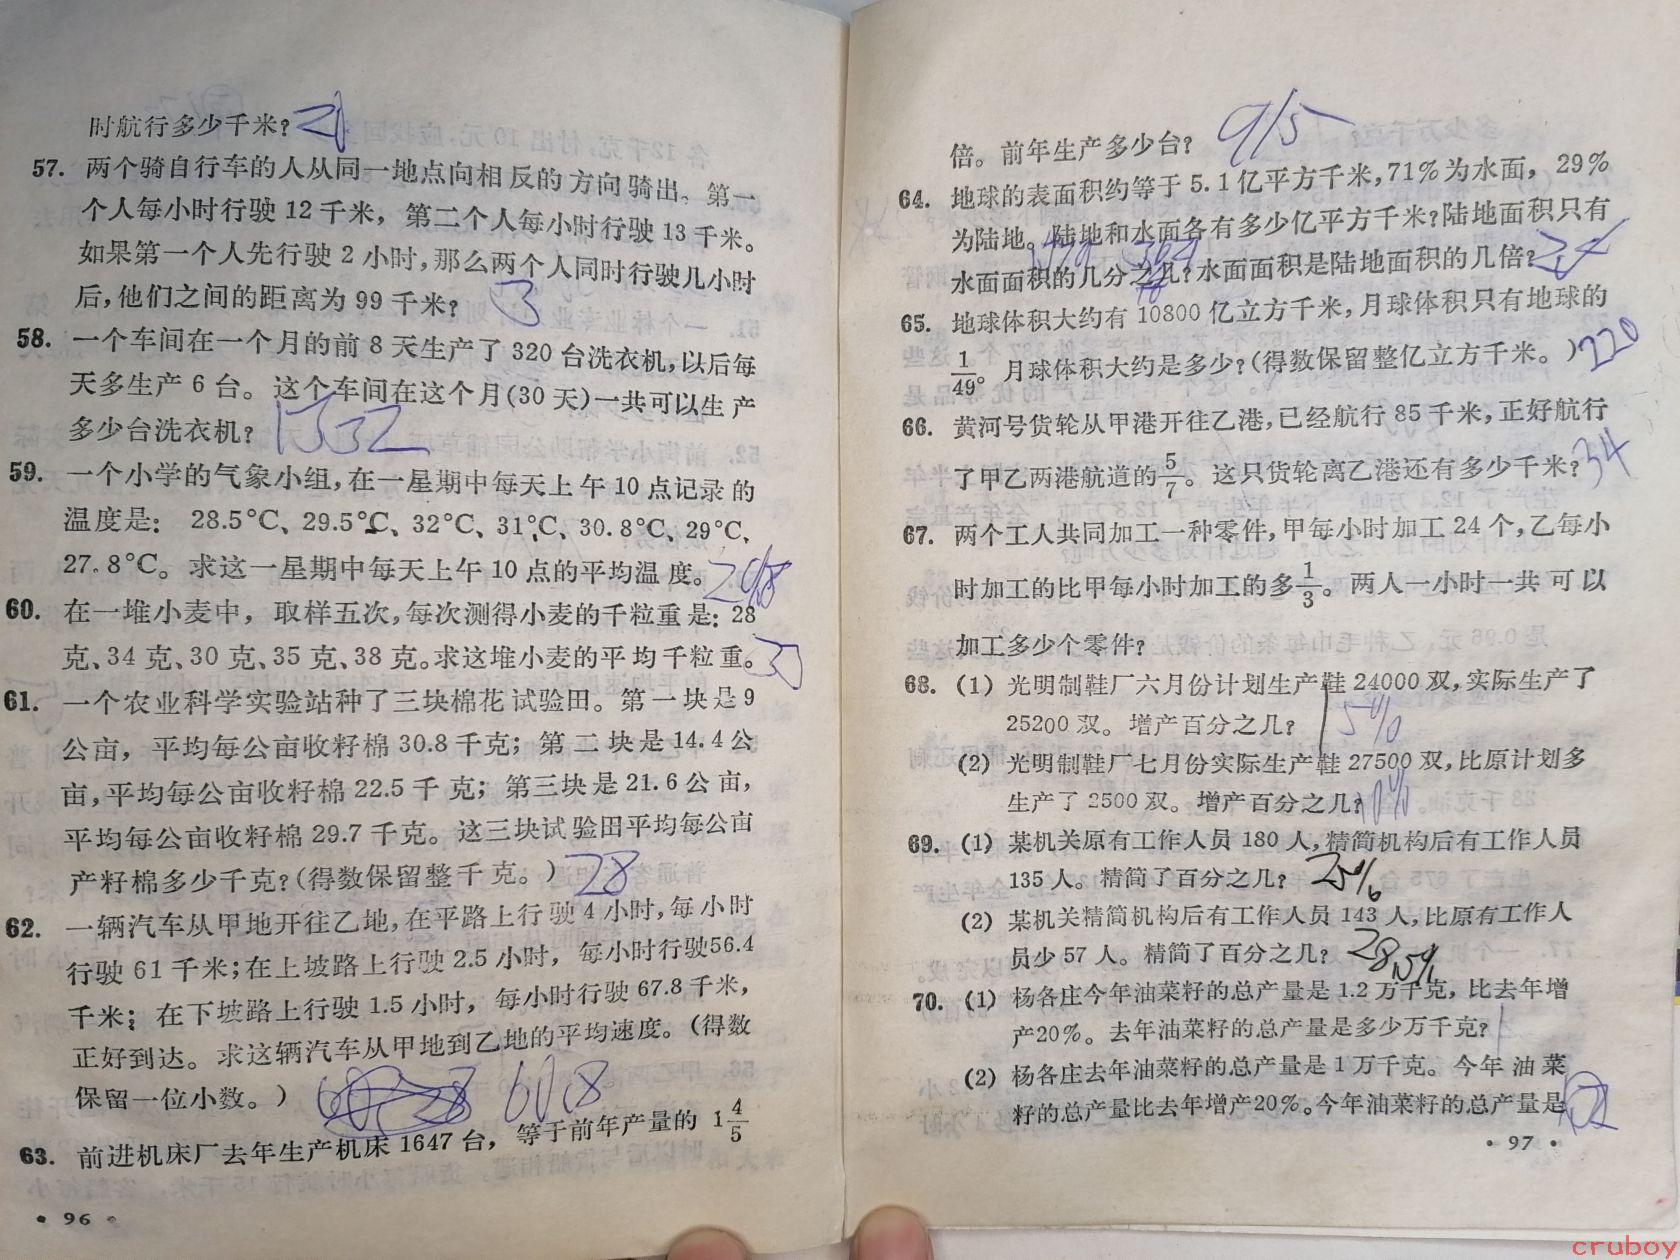 时航行多少千米?
57. 两个骑自行车的人从同一地点向相反的方向骑出。第一
个人每小时行驶 12 千米，第二个人每小时行驶 13 千米。
如果第一个人先行驶 2 小时,那么两个人同时行驶几小时
后,他们之间的距离为 99 千米? 3
58. 一个车间在一个月的前 8 天生产了 320 台洗衣机,以后每
天多生产 6 台。这个车间在这个月(30 天)一共可以生产
多少台洗衣机? 1332
59. 一个小学的气象小组,在一星期中每天上午 10 点记录的
温度是： 28.5°C、29.5°C、32°C、31°C、30.8°C、29°C、
27.8°C。求这一星期中每天上午 10 点的平均温度。
60. 在一堆小麦中，取样五次,每次测得小麦的千粒重是: 28
克、34 克、30 克、35 克、38 克。求这堆小麦的平均千粒重。
61. 一个农业科学实验站种了三块棉花试验田。第一块是 9
公亩，平均每公亩收籽棉 30.8 千克；第二块是 14.4 公
亩,平均每公亩收籽棉 22.5 千克；第三块是 21.6 公亩，
平均每公亩收籽棉 29.7 千克。这三块试验田平均每公亩
产籽棉多少千克?(得数保留整千克。) 28
62. 一辆汽车从甲地开往乙地,在平路上行驶 4 小时,每小时
行驶 61 千米;在上坡路上行驶 2.5 小时，每小时行驶56.4
千米；在下坡路上行驶 1.5 小时，每小时行驶 67.8 千米，
正好到达。求这辆汽车从甲地到乙地的平均速度。(得数
保留一位小数。) 60.8
63. 前进机床厂去年生产机床 1647 台，等于前年产量的 1 4/5
• 96 •
倍。前年生产多少台? 915
64. 地球的表面积约等于 5.1 亿平方千米,71% 为水面，29%
为陆地。陆地和水面各有多少亿平方千米?陆地面积只有
水面面积的几分之几?水面面积是陆地面积的几倍?
65. 地球体积大约有 10800 亿立方千米，月球体积只有地球的
1/49。月球体积大约是多少?(得数保留整亿立方千米。) 220
66. 黄河号货轮从甲港开往乙港,已经航行 85 千米，正好航行
了甲乙两港航道的 5/7。这只货轮离乙港还有多少千米? 34
67. 两个工人共同加工一种零件,甲每小时加工 24 个,乙每小
时加工的比甲每小时加工的多 1/3。两人一小时一共可以
加工多少个零件?
68. (1) 光明制鞋厂六月份计划生产鞋 24000 双,实际生产了
25200 双。增产百分之几? 5%
(2) 光明制鞋厂七月份实际生产鞋 27500 双,比原计划多
生产了 2500 双。增产百分之几? 10%
69. (1) 某机关原有工作人员 180 人,精简机构后有工作人员
135 人。精简了百分之几? 25%
(2) 某机关精简机构后有工作人员 143 人,比原有工作人
员少 57 人。精简了百分之几? 28.5%
70. (1) 杨各庄今年油菜籽的总产量是 1.2 万千克，比去年增
产20%。去年油菜籽的总产量是多少万千克? 1
(2) 杨各庄去年油菜籽的总产量是 1 万千克。今年油菜
籽的总产量比去年增产20%。今年油菜籽的总产量是
• 97 •
cruboy